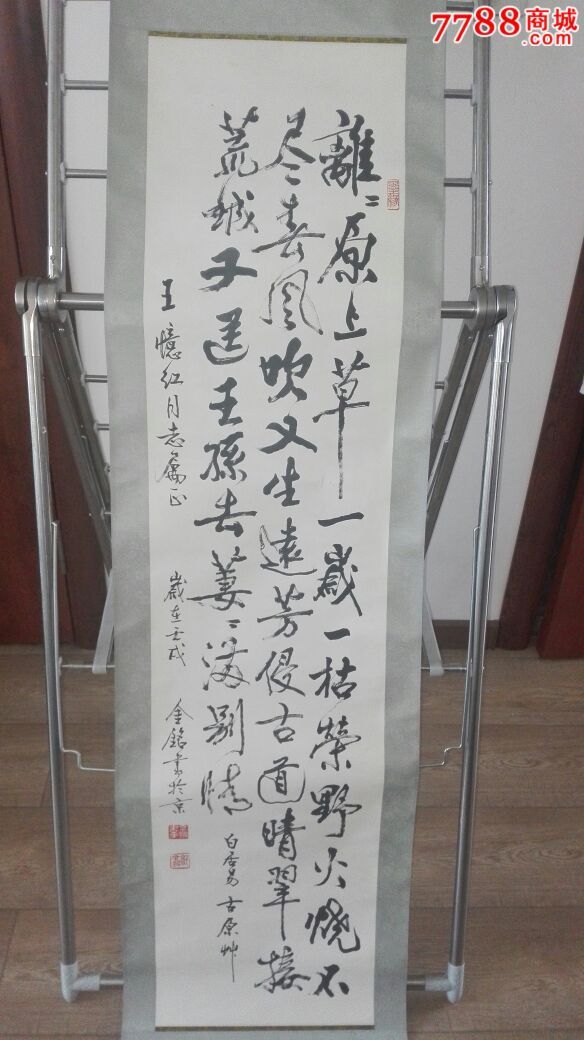 7788商城
.com
離〻原上草一歲一枯榮野火燒不
尽春風吹又生遠芳侵古道晴翠接
荒城又送王孫去萋〻满别情
白居易古原艸
王憶红同志属正
歲在壬戌 金銘書於京